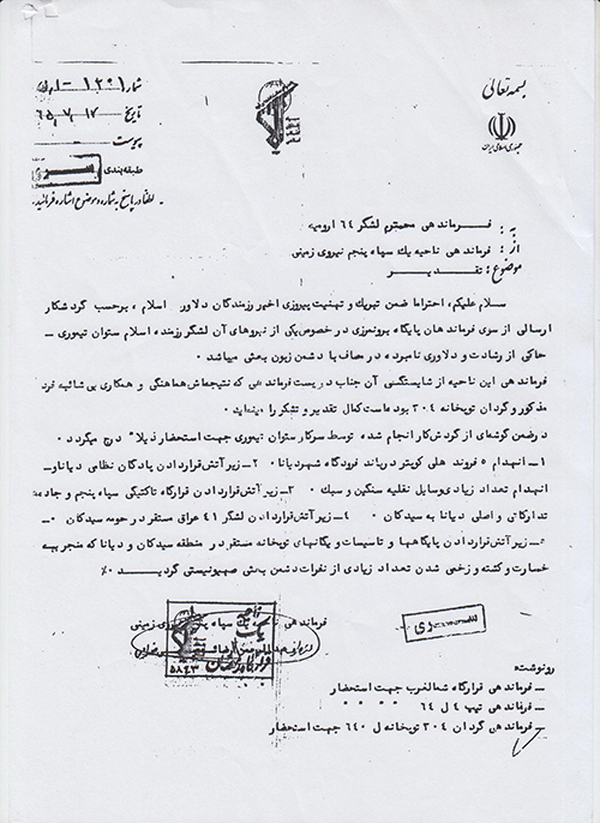 بسمه تعالی
جمهوری اسلامی ایران
شماره ۱۲۰۱-
تاریخ ۶۵٫۷٫۱۷
پیوست
طبقه بندی سری
لطفا در پاسخ به شماره و موضوع اشاره فرمائید.
به : فرماندهی محترم لشگر ۶۴ ارومیه
از : فرماندهی ناحیه یک سپاه پنجم نیروی زمینی
موضوع : تقدیر
سلام علیکم، احتراما ضمن تبریک و تهنیت پیروزی اخیر رزمندگان دلاور اسلام ، برحسب گردشکار
ارسالی از سری فرماندهان پایگاه برونمرزی در خصوص یکی از نیروهای آن لشگر رزمنده اسلام ستوان تیموری -
حاکی از رشادت و دلاوری نامبرده در مصاف با دشمن زبون بعثی میباشد ۰
فرماندهی این ناحیه از شایستگسی آن جناب در پست فرماندهی که نتیجه‌اش هماهنگی و همکاری بی شائبه فرد
مذکور و گردان توپخانه ۳۰۴ بوده است کمال تقدیر و تشکر را مینماید ۰
در ضمن گوشه‌ای از گردش کار انجام شده توسط سرکار ستوان تیموری جهت استحضار ذیلا درج میگردد ۰
۱- انهدام ۵ فروند هلی کوپتر در باند فرودگاه شهر دیانا ۰ ۲- زیر آتش قرار دادن پادگان نظامی دیانا و -
انهدام تعداد زیادی وسایل نقلیه سنگین و سبک ۰ ۳- زیر آتش قرار دادن قرارگاه تاکتیکی سپاه پنجم و جاده
تدارکاتی و اصلی دیانا به سیدکان ۰ ۴- زیر آتش قرار دادن لشگر ۴۱ عراق مستقر در حومه سیدکان ۰-
۵- زیر آتش قرار دادن پایگاهها و تاسیسات و یگانهای توپخانه مستقر در منطقه سیدکان و دیانا که منجر به
خسارت و کشته و زخمی شدن تعداد زیادی از نفرات دشمن بعثی صهیونیستی گردید ۰٪
فرماندهی ناحیه یک سپاه پنجم نیروی زمینی
یک
۵۸۴۳
سری
رونوشت :
- فرماندهی قرارگاه شمالغرب جهت استحضار
- فرماندهی تیپ ۴ ل ۶۴ " " " "
- فرماندهی گردان ۳۰۴ توپخانه ل ۶۴۰ جهت استحضار